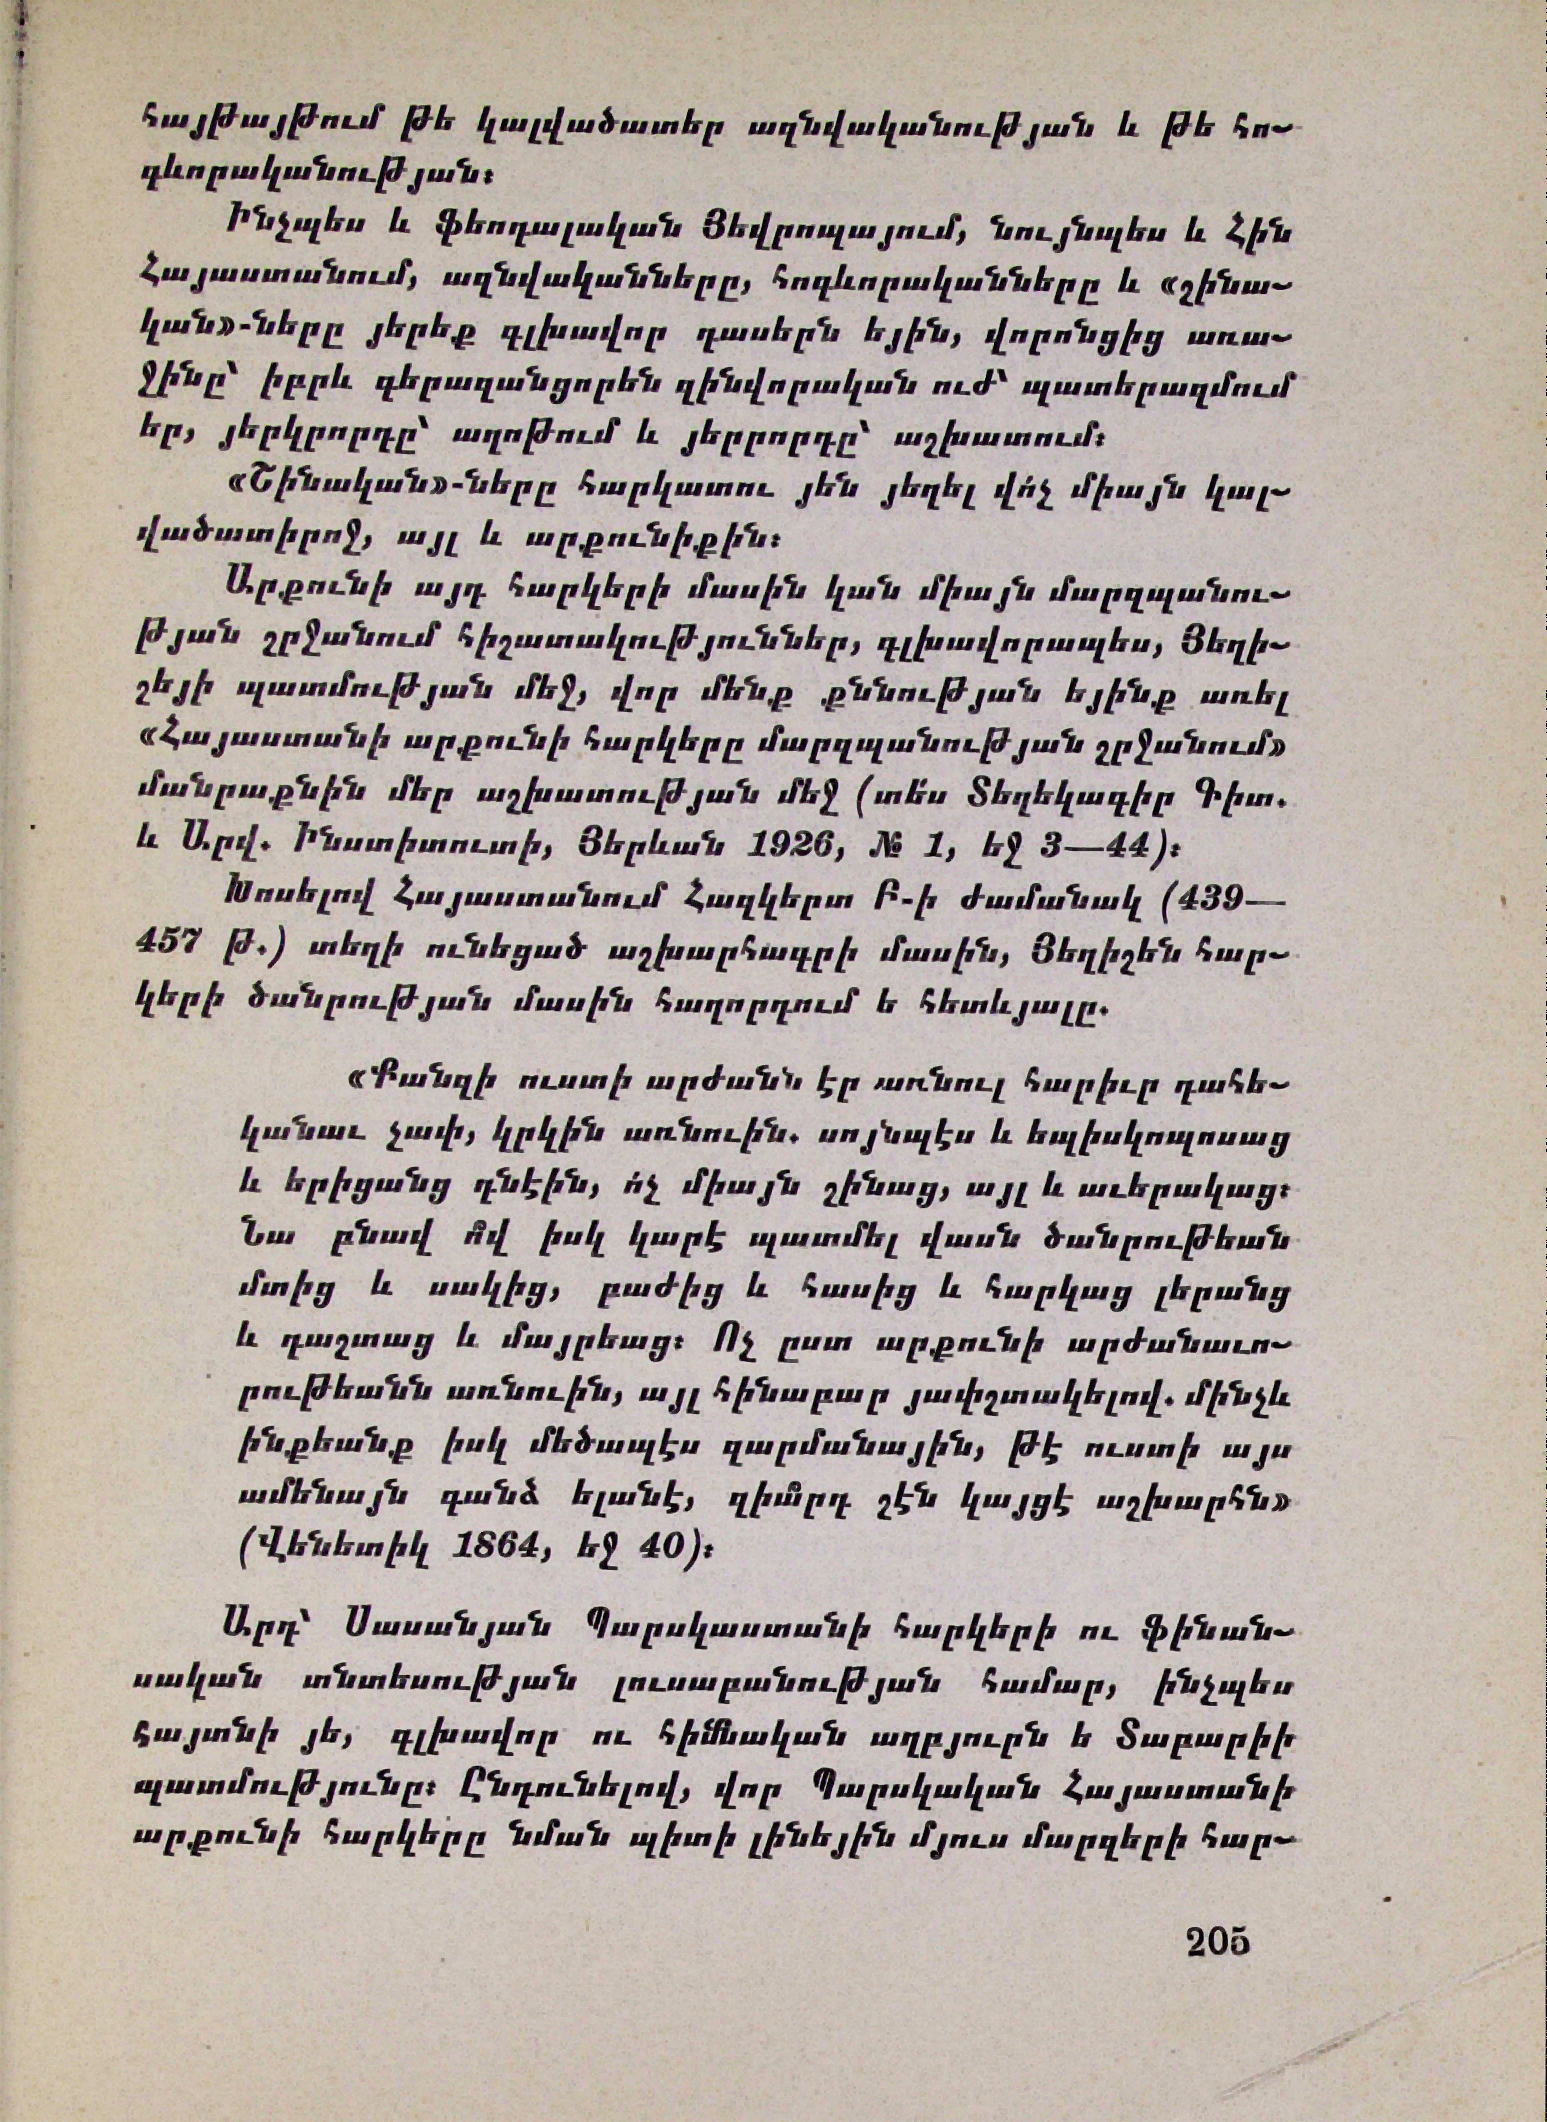 հայթայթում թե կալվածատեր ազնվականության և թե հո-
գևորականության։
Ինչպես և ֆեոդալական Յեվրոպայում, նույնպես և Հին
Հայաստանում, ազնվականները, հոգևորականները և «շինա-
կան»-ները յերեք գլխավոր դասերն եյին, վորոնցից առա-
ջինը՝ իբրև գերազանցորեն զինվորական ուժ՝ պատերազմում
եր, յերկրորդը՝ աղոթում և յերրորդը՝ աշխատում։
«Շինական»-ները հարկատու յեն յեղել վո՛չ միայն կալ-
վածատիրոջ, այլ և արքունիքին։
Արքունի այդ հարկերի մասին կան միայն մարզպանու-
թյան շրջանում հիշատակություններ, գլխավորապես, Յեղի-
շեյի պատմության մեջ, վոր մենք քննության եյինք առել
«Հայաստանի արքունի հարկերը մարզպանության շրջանում»
մանրաքնին մեր աշխատության մեջ (տե՛ս Տեղեկագիր Գիտ.
և Արվ. Ինստիտուտի, Յերևան 1926, № 1, եջ 3—44)։
Խոսելով Հայաստանում Հազկերտ Բ-ի ժամանակ (439—
457 թ.) տեղի ունեցած աշխարհագրի մասին, Յեղիշեն հար-
կերի ծանրության մասին հաղորդում ե հետևյալը.
«Քանզի ուստի արժանն էր առնուլ հարիւր դահե-
կանաւ չափ, կրկին առնուին. սոյնպէս և եպիսկոպոսաց
և երիցանց դնէին, ո՛չ միայն շինաց, այլ և աւերակաց։
Նա բնավ ո՞վ իսկ կարէ պատմել վասն ծանրութեան
մտից և սակից, բաժից և հասից և հարկաց լերանց
և դաշտաց և մայրեաց։ Ոչ ըստ արքունի արժանաւո-
րութեանն առնուին, այլ հինաբար յափշտակելով. մինչև
ինքեանք իսկ մեծապէս զարմանային, թէ ուստի այս
ամենայն գանձ ելանէ, զիա՞րդ շէն կայցէ աշխարհն»
(Վենետիկ 1864, եջ 40)։
Արդ՝ Սասանյան Պարսկաստանի հարկերի ու ֆինան-
սական տնտեսության լուսաբանության համար, ինչպես
հայտնի յե, գլխավոր ու հիմնական աղբյուրն ե Տաբարիի
պատմությունը։ Ընդունելով, վոր Պարսկական Հայաստանի
արքունի հարկերը նման պիտի լինեյին մյուս մարզերի հար-
205